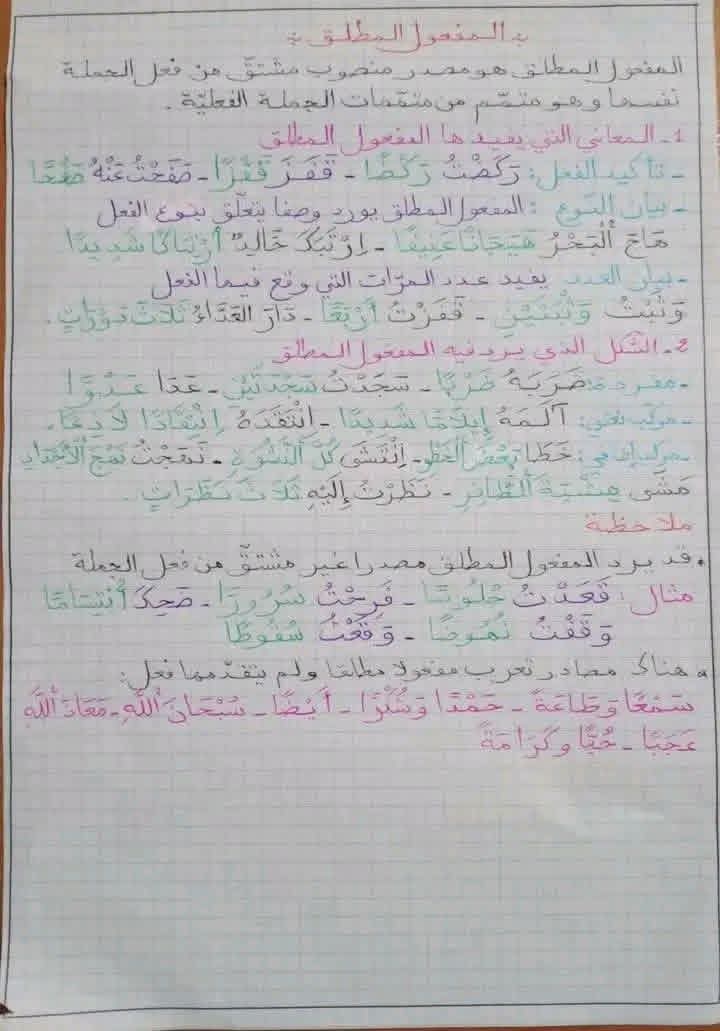 * المفعول المطلق *
المفعول المطلق هو مصدر منصوب مشتقّ من فعل الجملة
نفسها وهو متمّم من متمّمات الجملة الفعليّة .
1 - المعاني التي يفيدها المفعول المطلق
- تأكيد الفعل : رَكَضْتُ رَكْضًا - قَفَزَ قَفْزًا - صَفَحْتُ عَنْهُ صَفْحًا
- بيان النّوع : المفعول المطلق يورد وصفا يتعلّق بنوع الفعل
هَاجَ الْبَحْرُ هَيَجَانًا عَنِيفًا - اِرْتَبَكَ خَالِدٌ اُرْتِبَاكًا شَدِيدًا
- بيان العدد يفيد عدد المرّات التي وقع فيها الفعل
وَثَبْتُ وَثْبَتَيْنِ - قَفَزْتُ أَرْبَعًا - دَارَ العَدَّاءُ ثَلَاثَ دَوْرَاتٍ .
2 - الشكل الذي يرد فيه المفعول المطلق
- مفردة : ضَرَبَهُ ضَرْبًا - سَجَدْتُ سَجْدَتَيْنِ - عَدَا عَدْوًا
- مركب نعتي : آلَمَهُ إِيلَامًا شَدِيدًا - اِنْتَقَدَهُ اِنْتِقَادًا لَاذِعًا .
- مركب إضافي : خَطَا بَعْضَ الْخَطْوِ - اِنْتَشَى كُلَّ النَّشْوَةِ - نَهَجْتُ نَهْجَ الْأَجْدَادِ
مَشَى مِشْيَةَ الظَّافِرِ - نَظَرْتُ إِلَيْهِ ثَلَاثَ نَظَرَاتٍ .
ملاحظة
• قد يرد المفعول المطلق مصدرا غير مشتقّ من فعل الجملة
مثال : قَعَدْتُ جُلُوسًا - فَرِحْتُ سُرُورًا - ضَحِكَ اُبْتِسَامًا
وَقَفْتُ نُهُوضًا - وَقَعْتُ سُقُوطًا
• هناك مصادر تعرب مفعولا مطلقا ولم يتقدّمها فعل :
سَمْعًا وَطَاعَةً - حَمْدًا وَشُكْرًا - أَيْضًا - سُبْحَانَ اللَّهِ - مَعَاذَ اللَّهِ
عَجَبًا - حُبًّا وكَرَامَةً